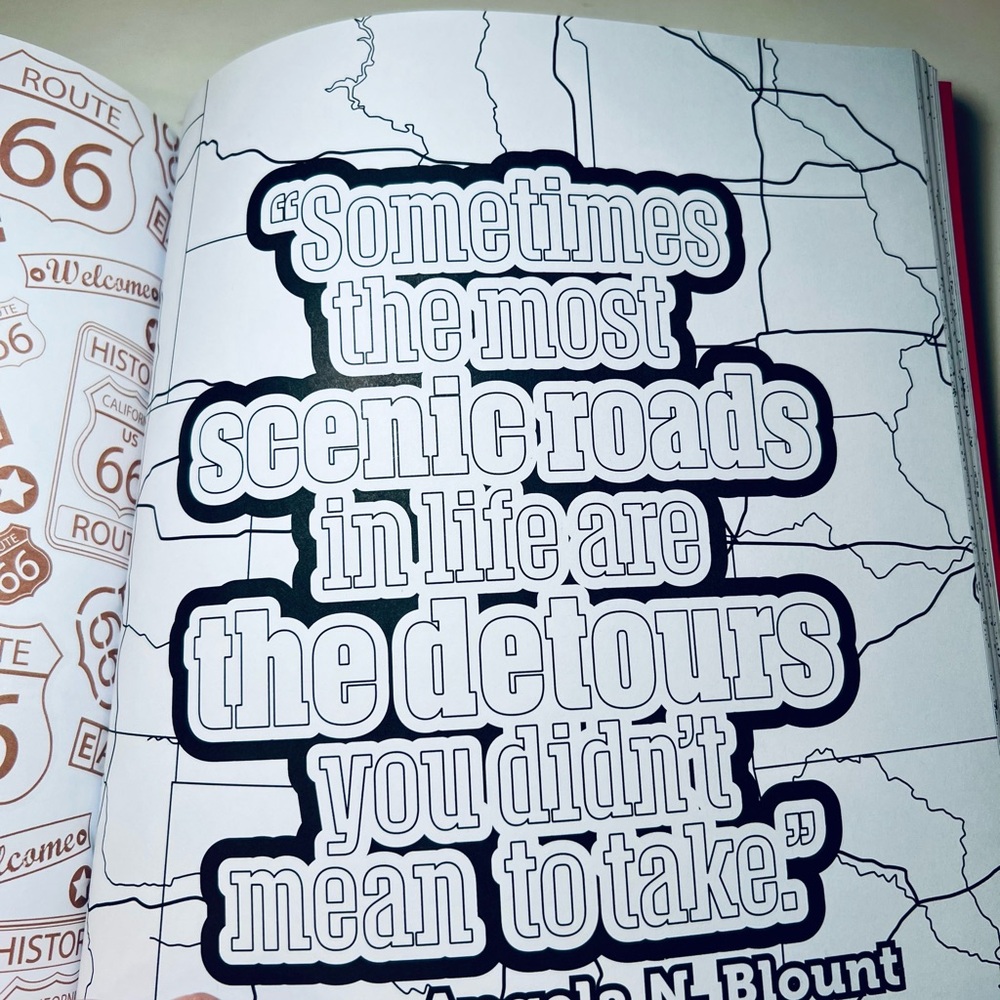 ROUTE
66
Welcome
66
HISTO
CALIFORN
US
66
ROUT
UTE
66
TE
EA
lcome
HISTOR
“Sometimes
the most
scenic roads
in life are
the detours
you didn’t
mean to take.”
Angela N. Blount